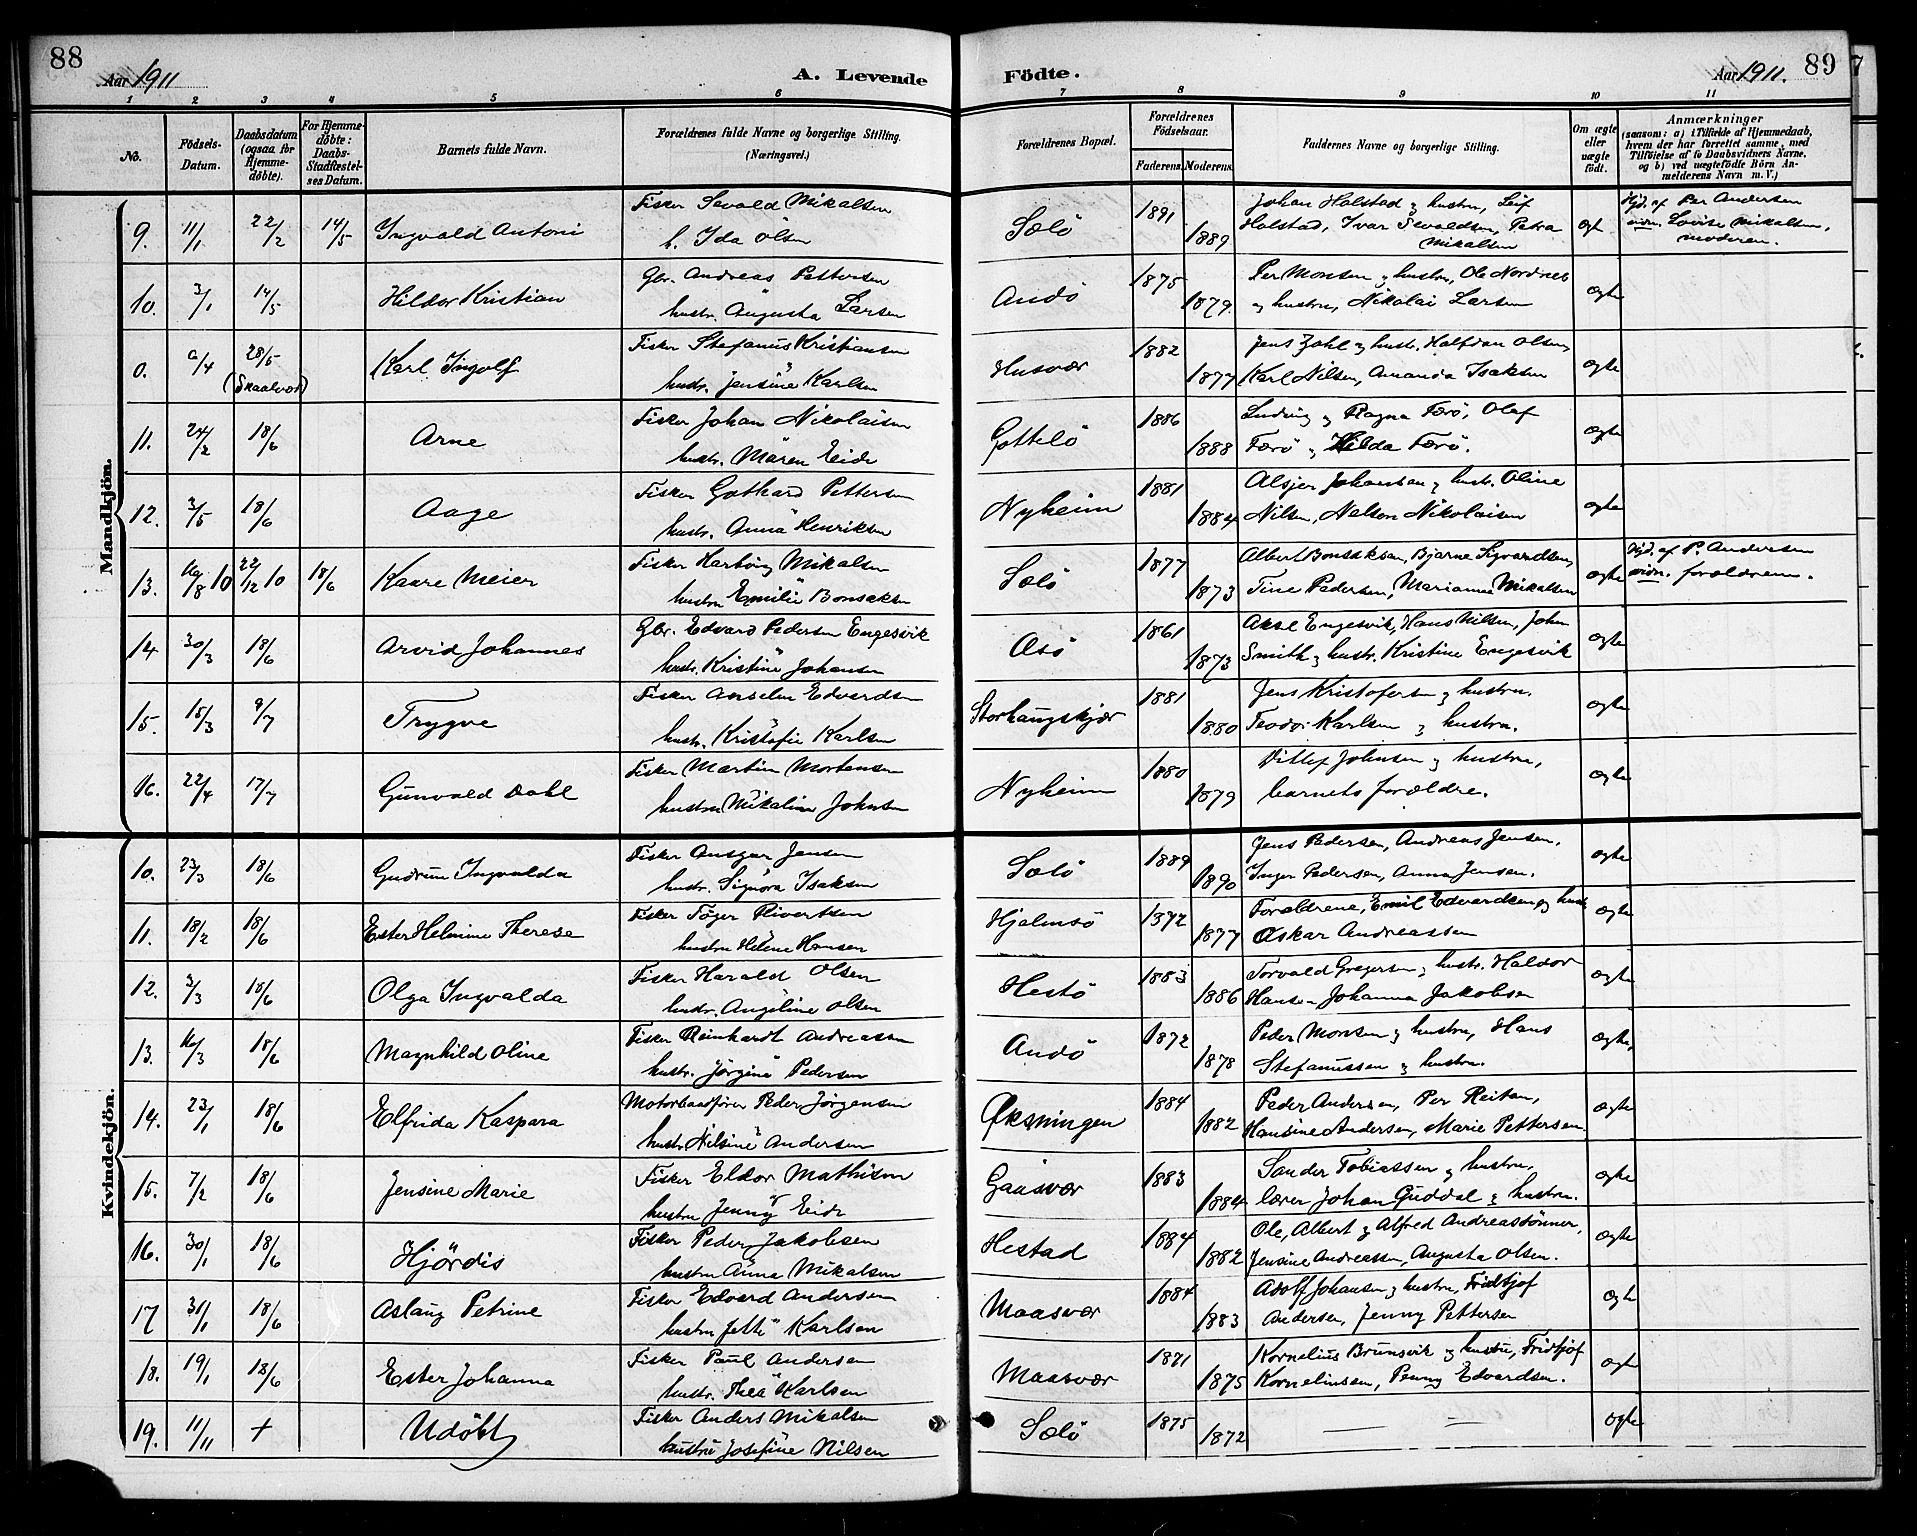 88
Aar 1911
A. Levende
Födte.
Aar 1911.
89
1 2 3 4 5 6 7 8 9 10 11
No.
Födsels-Datum.
Daabsdatum (ogsaa for Hjemme-döbte).
For Hjemme-döbte: Daabs-Stadfæstel-ses Datum.
Barnets fulde Navn.
Forældrenes fulde Navne og borgerlige Stilling. (Næringsvei.)
Forældrenes Bopæl.
Forældrenes Födselsaar.
Faderens. Moderens.
Faddernes Navne og borgerlige Stilling.
Om ægte eller uægte födt.
Anmærkninger
(saasom: a) i Tilfælde af Hjemmedaab,
hvem der har forrettet samme, med
Tilföielse af to Daabsvidners Navne,
og b) ved uægtefödte Börn An-
melderens Navn m. V.)
Mandkjön.
9. 11/1 22/2 14/5 Ingvald Antoni Fisker Sevald Mikalsen h. Ida Olsen Sælö 1891 1889 Johan Holstad og hustru, Leif Holstad, Ivar Sevaldsen, Petra Mikalsen Hjd. af Per Andersen vidn. Lovise Mikalsen, moderen.
10. 3/1 14/5 Hildor Kristian Gbr. Andreas Pettersen hustr. Augusta Larsen Andö 1875 1879. Per Monsen og hustru, Ole Nordnes og hustru, Nikolai Larsen ægte
0. 9/4 28/5 (Skaalvær) Karl Ingolf Fisker Stefanus Kristiansen hustr. Jensine Karlsen Husvær 1882 1877 Jens Zahl og hustr. Halfdan Olsen, Karl Nilsen, Amanda Isaksen ægte
11. 24/2 18/6 Arne Fisker Johan Nikolaisen hustr. Maren Eide Gottelö 1886 1888 Ludvig og Ragna Færö, Olaf Færö og Hilda Færö. ægte
12. 3/5 18/6 Aage Fisker Gothard Pettersen hustr. Anna Henriksen Nyheim 1881 1884 Johansen og hustr. Oline Nilsen, Nelson Nikolaisen ægte
13. 16/8 10 22/12 10 18/6 Kaare Meier Fisker Hartvig Mikalsen hustru Emilie Bonsaksen Sælö 1877 1873 Albert Bonsaksen, Bjarne Sigvardsen, Tine Pedersen, Marianna Mikalsen ægte Hjd. af P. Andersen vidn. forældrene.
14 30/3 18/6 Arvid Johannes Gbr. Edvard Pedersen Engesvik hustr. Kristine Johansen 1861 1873 Aksel Engesvik, Hans Nilsen, John Smith og hustr. Kristine Engesvik ægte
15. 15/3 9/7 Trygve Fisker Anselm Edvardsen hustr. Kristofie Karlsen Storhaugskjær 1881 1880 Jens Kristofersen og hustru. Teodor Karlsen og hustru. ægte
16. 22/4 17/7 Gunvald Dahl Fisker Martin Mortensen hustru Mikaline Johnsen Nyheim 1880 1879 Ditlef Johnsen og hustru, barnets forældre. ægte
Kvindekjön.
10. 23/3 18/6 Gudrun Ingvalda Fisker Ansgar Jensen hustr. Signora Isaksen Sælö 1889 1890 Jens Pedersen, Andreas Jensen, Inger Pedersen, Anna Jensen. ægte
11. 18/2 18/6 Ester Helmine Therese Fisker Töger Rivertsen hustru Helene Hansen Hjelmsö 1872 1877 Forældrene, Emil Edvardsen og hustr. Oskar Andreassen ægte
12. 3/3 18/6 Olga Ingvalda Fisker Harald Olsen hustr. Angeline Olsen Hestö 1883 1886 Torvald Gregersen og hustr. Haldor Hansen Johanna Jakobsen ægte
13. 16/3 18/6 Magnhild Oline Fisker Reinhardt Andreassen hustr. Jörgine Pedersen Andö 1872 1878 Peder Monsen og hustru, Hans Stefanussen og hustru. ægte,
14. 23/1 18/6 Elfrida Kaspara Motorbaadförer Peder Jörgensen hustr. Nilsine Andersen Öksningen 1884 1882 Peder Andersen, Per Reitan, Hansine Andersen, Marie Pettersen. ægte
15. 7/2 18/6 Jensine Marie Fisker Eldor Mathisen hustru Jenny Eide Gaasvær 1883 1884 Sander Tobiassen og hustru, lærer Johan Guddal og hustru. ægte
16. 30/1 18/6 Hjördis Fisker Peder Jakobsen hustru Anna Mikalsen Hestad 1884 1882 Ole, Albert og Alfred Andreassönner, Jensine Andreassen, Augusta Olsen. ægte
17 31/1 18/6 Aslaug Petrine Fisker Edvard Andersen hustru Jette Karlsen Maasvær 1884 1883 Adolf Johansen og hustru, Fridtjof Andersen, Jenny Pettersen ægte
18. 19/1 18/6 Ester Johanna Fisker Paul Andersen hustr. Thea Karlsen Maasvær 1871 1875 Kornelius Brunsvik og hustru, Fridtjof Korneliussen, Penny Edvardsen. ægte
19. 11/11 + Udöbt Fisker Anders Mikalsen hustru Josefine Nilsen Sælö 1875 1872 — — ægte